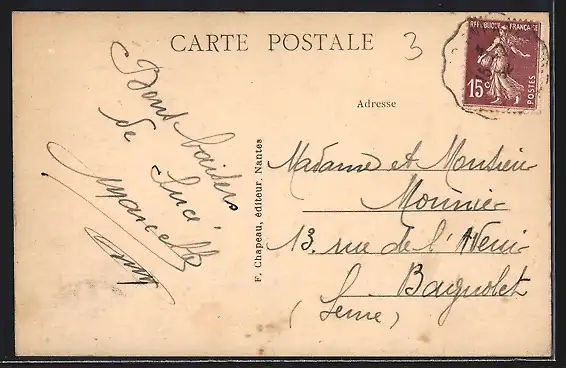 CARTE POSTALE
3
REPUBLIQUE FRANÇAISE
15c
POSTES
Adresse
Bons baisers
de Luce
Marcelle
F. Chapeau, éditeur, Nantes
Madame et Monsieur
Mounier
13. rue de l'Avenir
Bagnolet
(Seine)